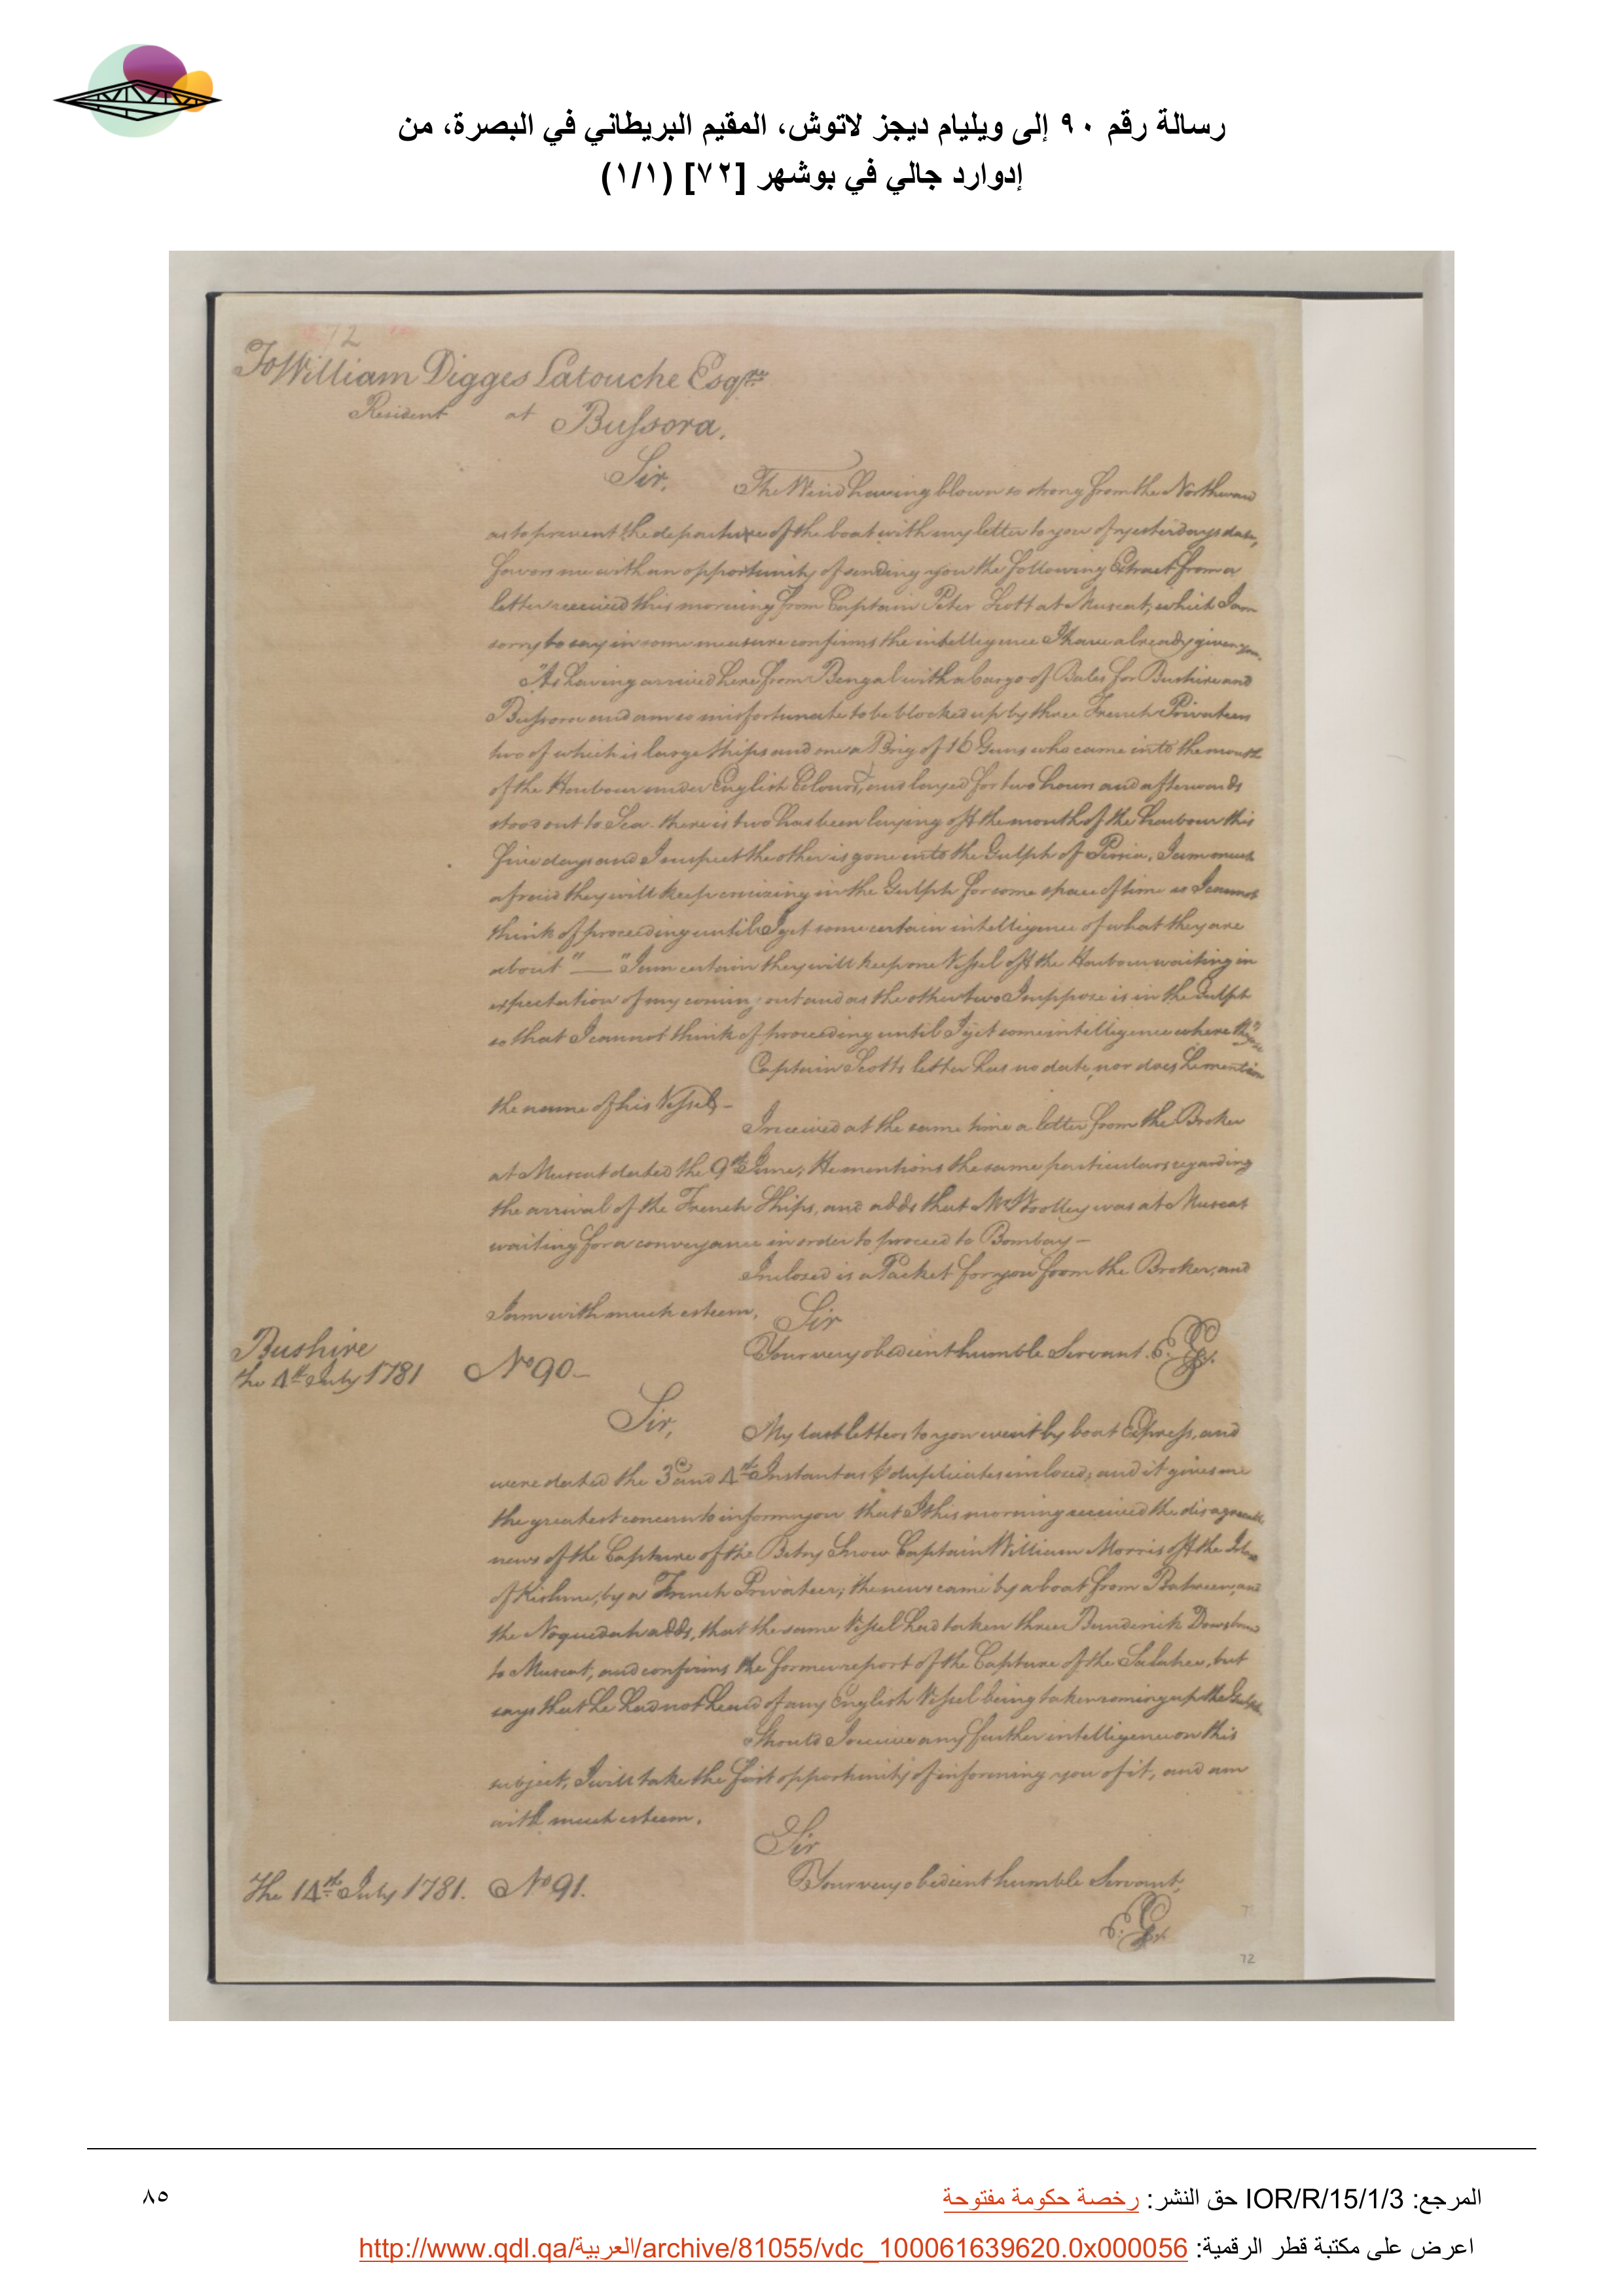 رسالة رقم ٩٠ إلى ويليام ديجز لاتوش، المقيم البريطاني في البصرة، من
إدوارد جالي في بوشهر [٧٢] (١/١)
72
To William Digges Latouche Esqre
Resident at Bussora.
Sir, The Wind having blown so strong from the Northward
as to prevent the departure of the boat with my letter to you of yesterdays date,
favors me with an opportunity of sending you the following Extract from a
letter received this morning from Captain Peter Scott at Muscat, which I am
sorry to say in some measure confirms the intelligence I have already given you.
"As having arrived here from Bengal with a Cargo of Bales for Bushire and
Bussora and am so misfortunate to be blocked up by three French Privateers
two of which is large Ships and one a Brig of 16 Guns who came into the mouth
of the Harbour under English Colours, and layed for two hours and afterwards
stood out to Sea. there is two has been laying off the mouth of the harbour this
five days and I suspect the other is gone into the Gulph of Persia, I am much
afraid they will keep cruizing in the Gulph for some space of time as I cannot
think of proceeding until I get some certain intelligence of what they are
about" — "I am certain they will keep one Vessel off the Harbour waiting in
expectation of my coming out and as the other two I suppose is in the Gulph
so that I cannot think of proceeding until I get some intelligence where they are
Captain Scotts letter has no date, nor does he mention
the name of his Vessel –
I received at the same time a letter from the Broker
at Muscat dated the 9th June; He mentions the same particulars regarding
the arrival of the French Ships, and adds that Mr Woolley was at Muscat
waiting for a conveyance in order to proceed to Bombay –
Inclosed is a Packet for you from the Broker, and
I am with much esteem, Sir
Your very obedient humble Servant. E. G.
Bushire
the 4th July 1781 No 90 –
Sir, My last letters to you went by boat Express, and
were dated the 3d and 4th Instant as duplicates inclosed; and it gives me
the greatest concern to inform you that I this morning received the disagreeable
news of the Capture of the Betsy Snow Captain William Morris off the Island
of Kishme, by a French Privateer; the news came by a boat from Bahreen, and
the Noquedah adds, that the same Vessel had taken three Bunderick Dows bound
to Muscat, and confirms the former report of the Capture of the Salahee, but
says that he had not heard of any English Vessel being taken coming up the Gulph
Should I receive any further intelligence on this
subject, I will take the first opportunity of informing you of it, and am
with much esteem,
Sir
Your very obedient humble Servant,
The 14th July 1781. No 91.
E. G.
72
المرجع: IOR/R/15/1/3 حق النشر: رخصة حكومة مفتوحة
٨٥
اعرض على مكتبة قطر الرقمية: http://www.qdl.qa/العربية/archive/81055/vdc_100061639620.0x000056